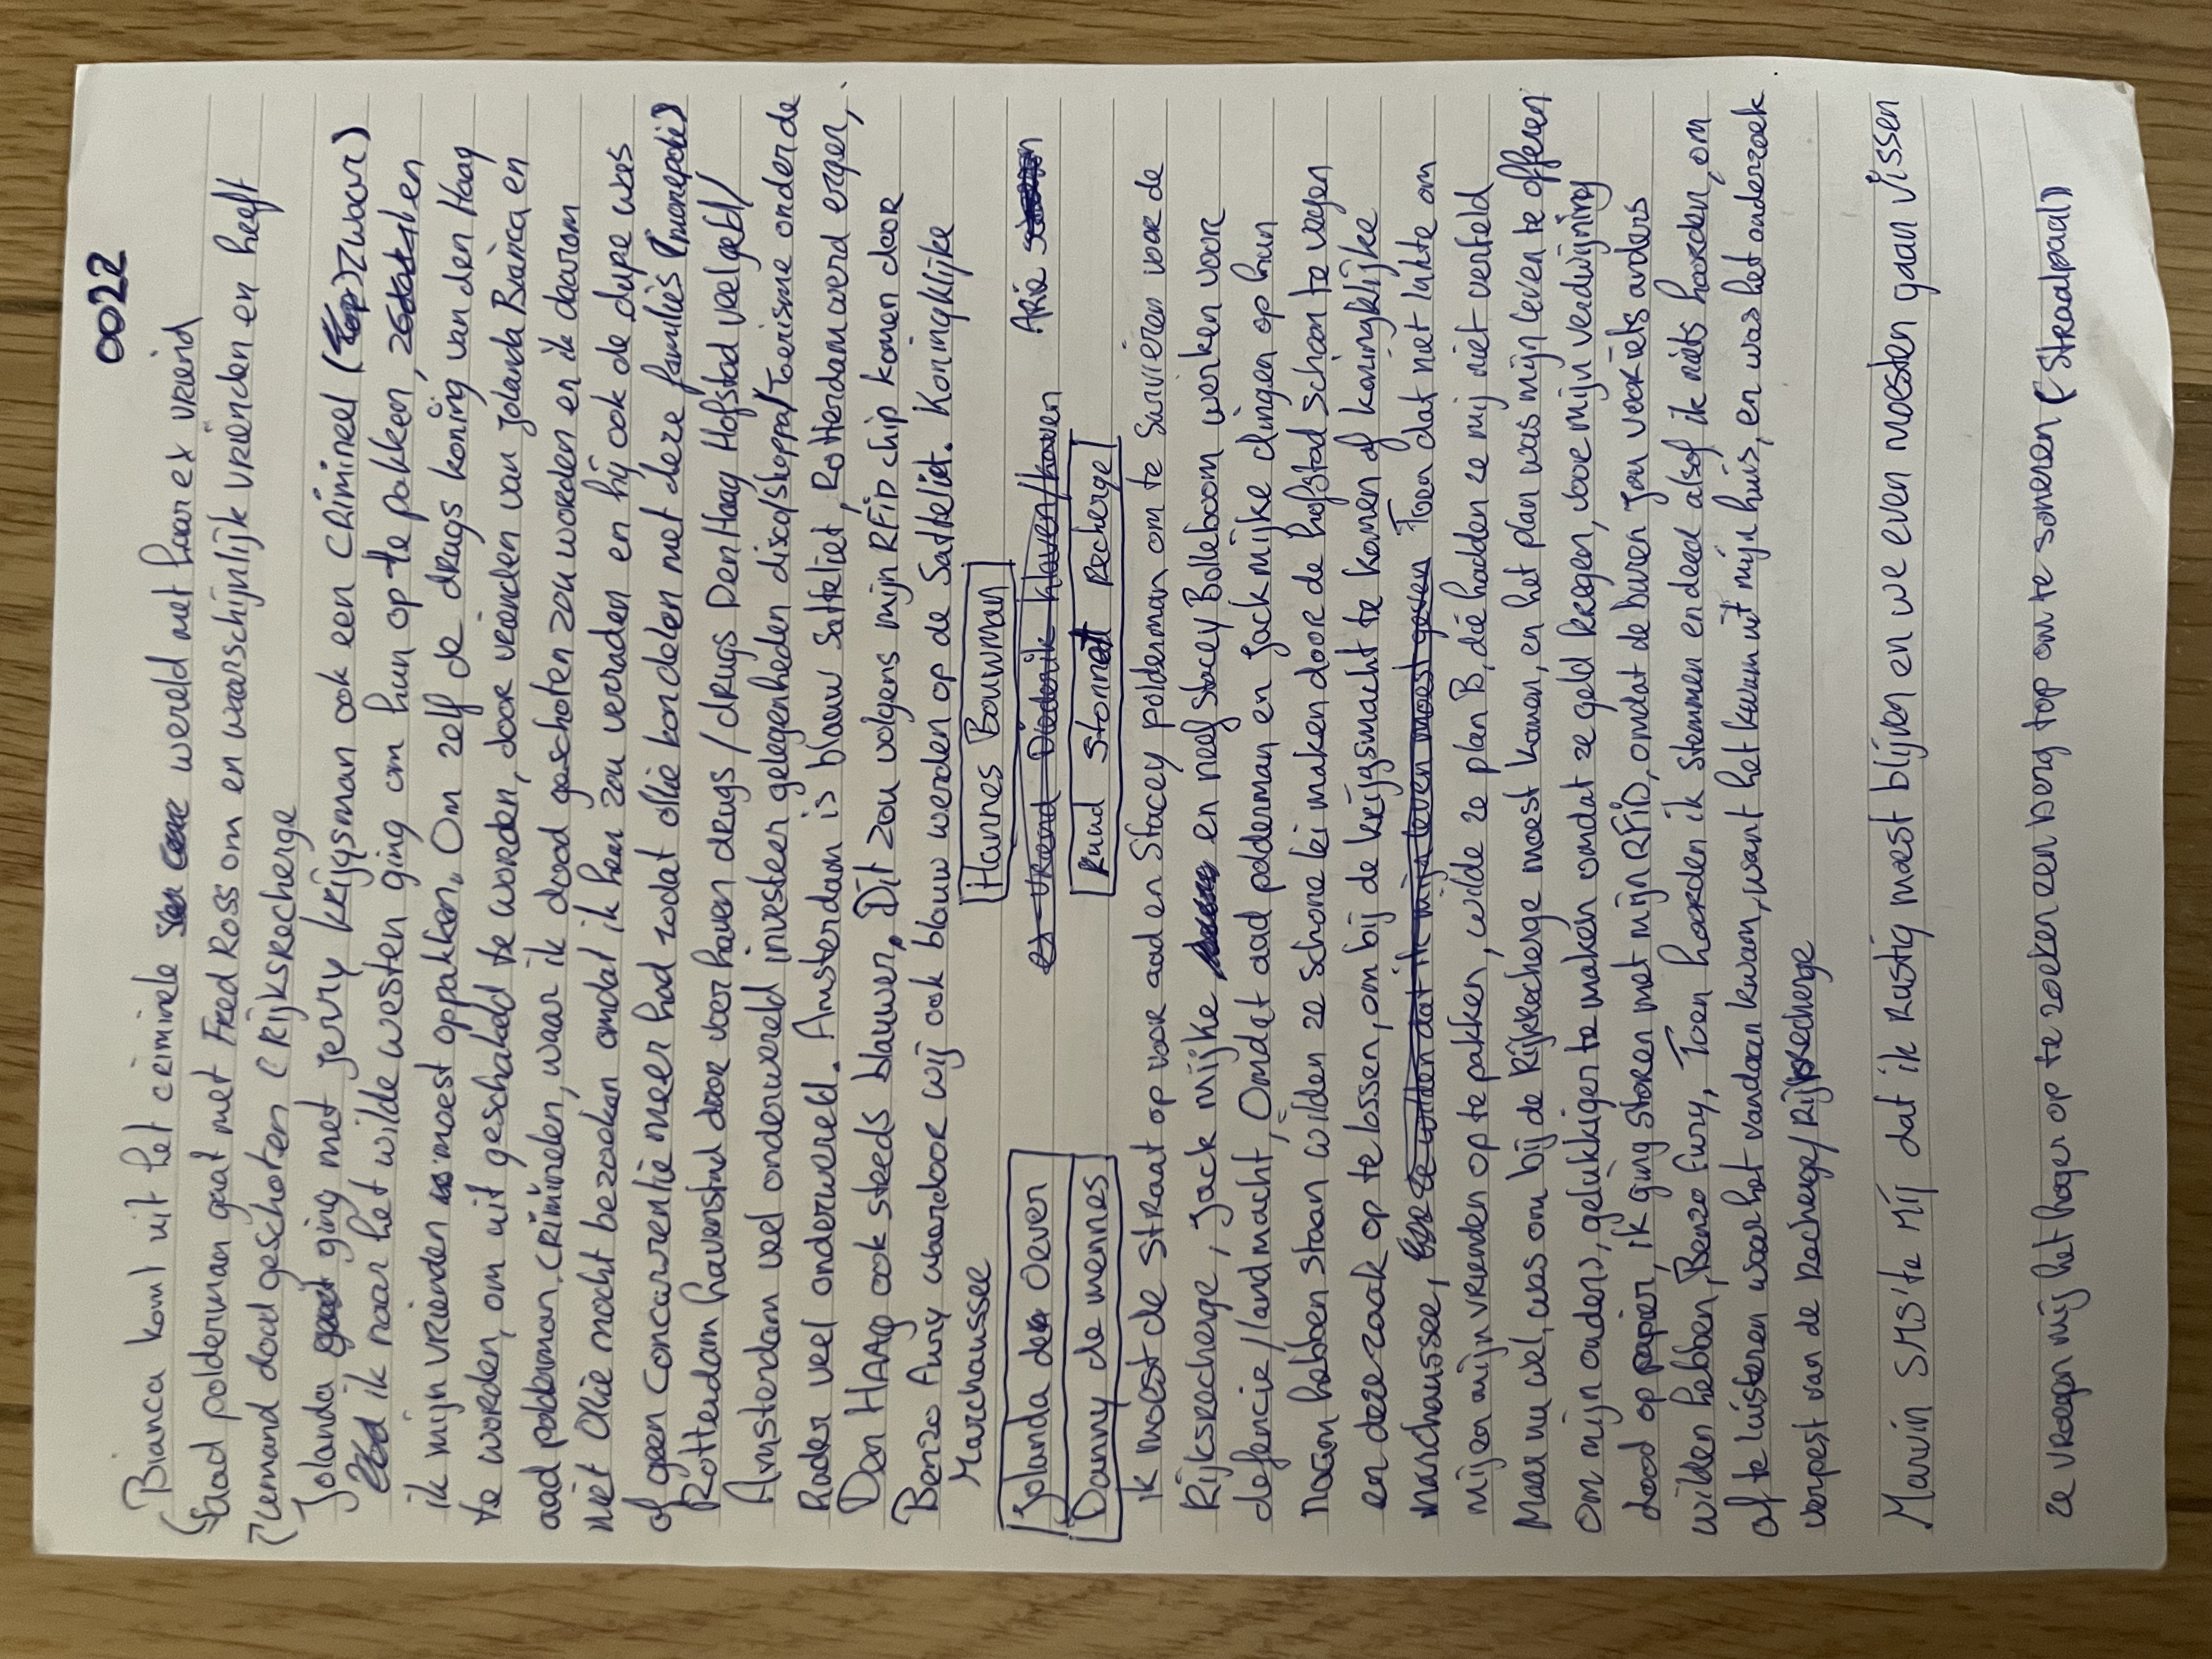 0022
Bianca komt uit het criminele wereld met haar ex vriend
(aad polderman gaat met Fred Ross om en waarschijnlijk vrienden en heeft
iemand dood geschoten (Rijksrecherge
Jolanda ging met jerry krijgsman ook een crimineel (Top) zwaar)
ik naar het wilde westen ging om hun op te pakken,
ik mijn vrienden moest oppakken. Om zelf de drugs koning van den Haag
te worden, om uit geschakeld te worden, door vrienden van Jolanda Bianca en
aad polderman, criminelen, waar ik dood geschoten zou worden en ik daarom
niet Ollie mocht bezoeken omdat ik hem zou verraden en hij ook de dupe was
of geen Concurrentie meer had zodat ollie kon delen met dere families (monopolie)
Rotterdam havenstad door voor haven drugs / drugs Den Haag Hofstad veel geld /
Amsterdam veel onderwereld investeer gelegenheden disco/shoppa/Toerisme onder de
Rader veel onderwereld. Amsterdam is blauw Satteliet, Rotterdam werd erger,
Den HAAg ook steeds blauwer, Dit zou volgens mijn RFiD chip komen door
Benzo Fury waardoor wij ook blauw werden op de Satteliet. Koningklijke
Marchaussee
Hannes Bouwman
Jolanda den Oever ex vriend Diederik Haven/haven Arie
Danny de mennes Ruud Stonnet Recherge
Ik moest de straat op voor aad en Stacey polderman om te Survieren voor de
Rijksrecherge, Jack mijke en neef Stacey Bolleboom werken voor
defencie/landmacht, Omdat aad polderman en Jack mijke dingen op hun
naam hebben staan wilden ze schone lei maken door de hofstad schoon te vegen
en deze zaak op te lossen, om bij de krijgsmacht te komen of koningklijke
marchaussee, ze wilden dat ik mijn leven moest geven Toen dat niet lukte om
mij en mijn vrienden op te pakken, wilde ze plan B, die hadden ze mij niet verteld
Maar nu wel, was om bij de Rijksrecherge moest komen, en het plan was mijn leven te offeren
Om mijn ouders, gelukkiger te maken omdat ze geld kregen, voor mijn verdwijning
dood op papier, ik ging storen met mijn RFiD, omdat de buren jou voor iets anders
wilden hebben, Benzo Fury, Toen hoorden ik Stemmen en deed alsof ik niets hoorden, om
af te luisteren waar het vandaan kwam, want het kwam uit mijn huis, en was het onderzoek
verpest van de Recherge/Rijksrecherge
Marvin SMS'te Mij dat ik Rustig moest blijven en we even moesten gaan vissen
ze vroegen mij het hoger op te zoeken een berg top om te someren (Straalpaal)